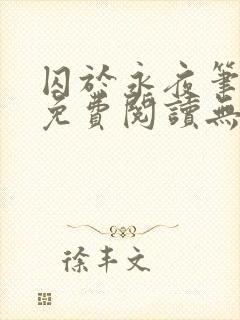 囚於永夜筆
免費閱讀無
徐丰文